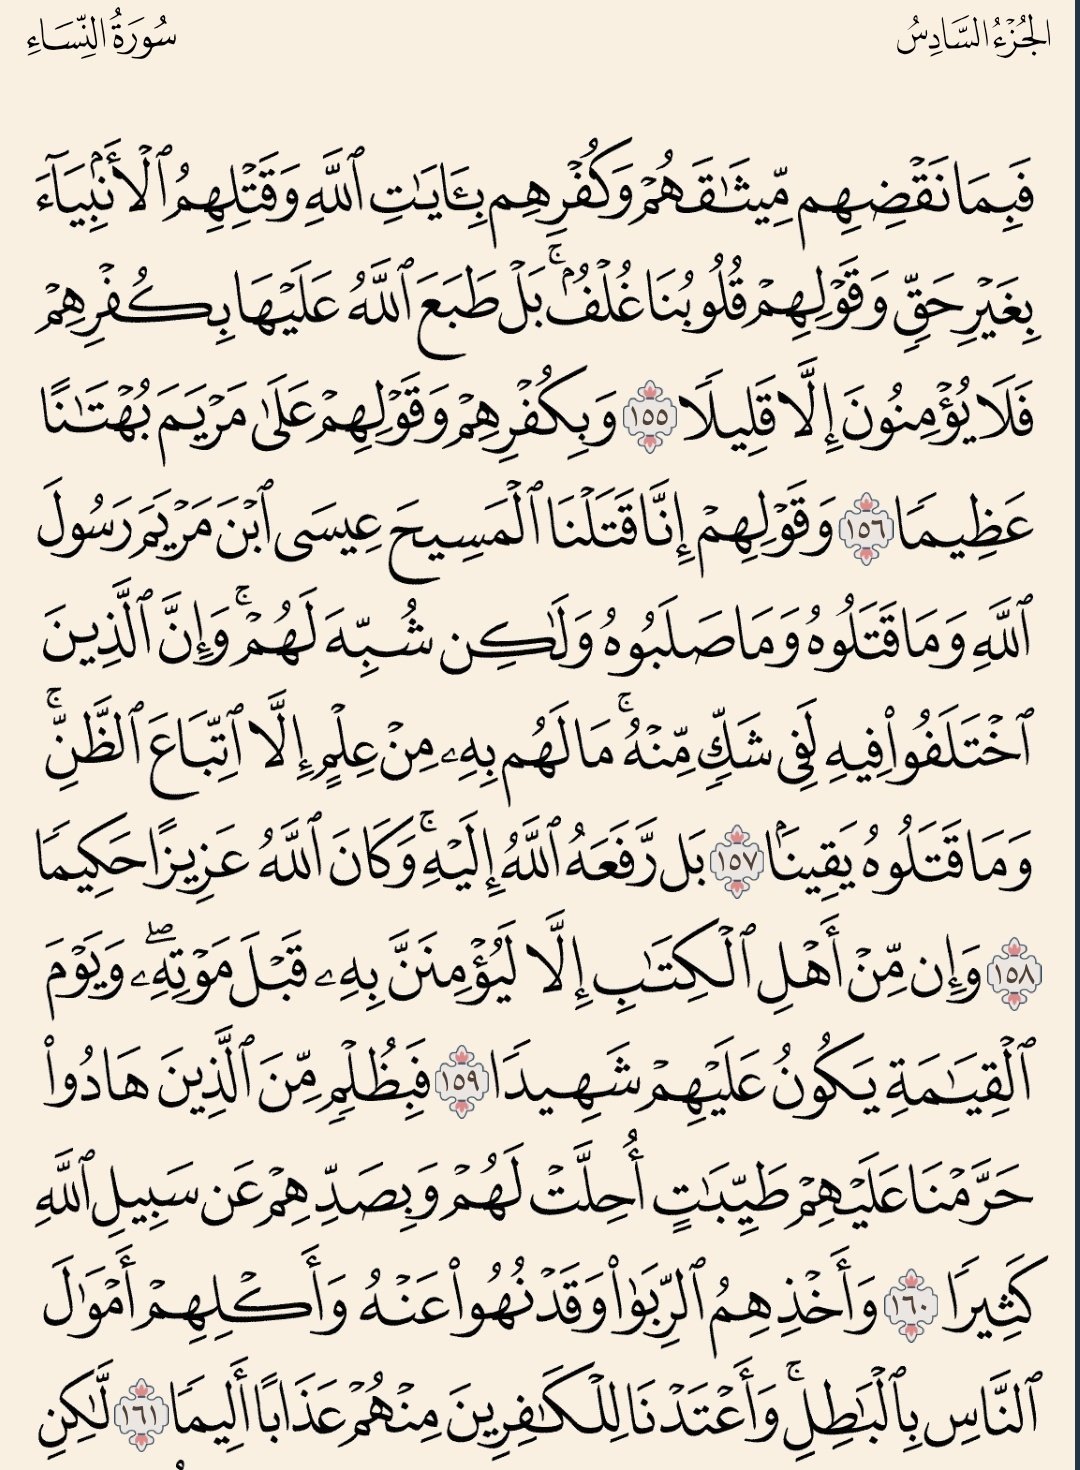 الجُزْءُ السَّادِسُ
سُورَةُ النِّسَاءِ
فَبِمَا نَقْضِهِم مِّيثَٰقَهُمْ وَكُفْرِهِم بِـَٔايَٰتِ ٱللَّهِ وَقَتْلِهِمُ ٱلْأَنۢبِيَآءَ
بِغَيْرِ حَقٍّ وَقَوْلِهِمْ قُلُوبُنَا غُلْفٌۢ ۚ بَلْ طَبَعَ ٱللَّهُ عَلَيْهَا بِكُفْرِهِمْ
فَلَا يُؤْمِنُونَ إِلَّا قَلِيلًا ١٥٥ وَبِكُفْرِهِمْ وَقَوْلِهِمْ عَلَىٰ مَرْيَمَ بُهْتَٰنًا
عَظِيمًا ١٥٦ وَقَوْلِهِمْ إِنَّا قَتَلْنَا ٱلْمَسِيحَ عِيسَى ٱبْنَ مَرْيَمَ رَسُولَ
ٱللَّهِ وَمَا قَتَلُوهُ وَمَا صَلَبُوهُ وَلَٰكِن شُبِّهَ لَهُمْ ۚ وَإِنَّ ٱلَّذِينَ
ٱخْتَلَفُوا۟ فِيهِ لَفِى شَكٍّ مِّنْهُ ۚ مَا لَهُم بِهِۦ مِنْ عِلْمٍ إِلَّا ٱتِّبَاعَ ٱلظَّنِّ ۚ
وَمَا قَتَلُوهُ يَقِينًۢا ١٥٧ بَل رَّفَعَهُ ٱللَّهُ إِلَيْهِ ۚ وَكَانَ ٱللَّهُ عَزِيزًا حَكِيمًا
١٥٨ وَإِن مِّنْ أَهْلِ ٱلْكِتَٰبِ إِلَّا لَيُؤْمِنَنَّ بِهِۦ قَبْلَ مَوْتِهِۦ ۖ وَيَوْمَ
ٱلْقِيَٰمَةِ يَكُونُ عَلَيْهِمْ شَهِيدًا ١٥٩ فَبِظُلْمٍ مِّنَ ٱلَّذِينَ هَادُوا۟
حَرَّمْنَا عَلَيْهِمْ طَيِّبَٰتٍ أُحِلَّتْ لَهُمْ وَبِصَدِّهِمْ عَن سَبِيلِ ٱللَّهِ
كَثِيرًا ١٦٠ وَأَخْذِهِمُ ٱلرِّبَوٰا۟ وَقَدْ نُهُوا۟ عَنْهُ وَأَكْلِهِمْ أَمْوَٰلَ
ٱلنَّاسِ بِٱلْبَٰطِلِ ۚ وَأَعْتَدْنَا لِلْكَٰفِرِينَ مِنْهُمْ عَذَابًا أَلِيمًا ١٦١ لَّٰكِنِ